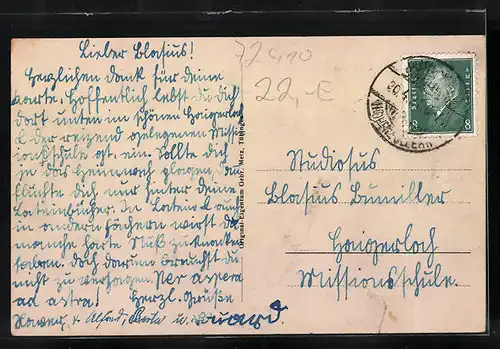 Lieber Blasius!
Herzlichen Dank für deine
Karte. Hoffentlich lebst du dich
dort unten im schönen Haigerloch
& der reizend gelegenen Miss
ionsschule gt. ein. Sollte dich
je das Heimweh plagen, dann
flüchte dich nur hinter deine
Lateinbücher. In Latein & auch
in andern Fächern wirst du
manche harte Nuß zu knacken
haben. Doch darum brauchst du
nicht zu verzagen. Per aspera
ad astra! Herzl. Grüße
Xaver, & Alfred, Berta u. Eduard.
72410
22,-E
Original-Eigentum Gebr. Metz, Tübingen
Deutsches Reich
8 8
HOHENZOLLERN
Studiosus
Blasius Bumiller
Haigerloch
Missionsschule.